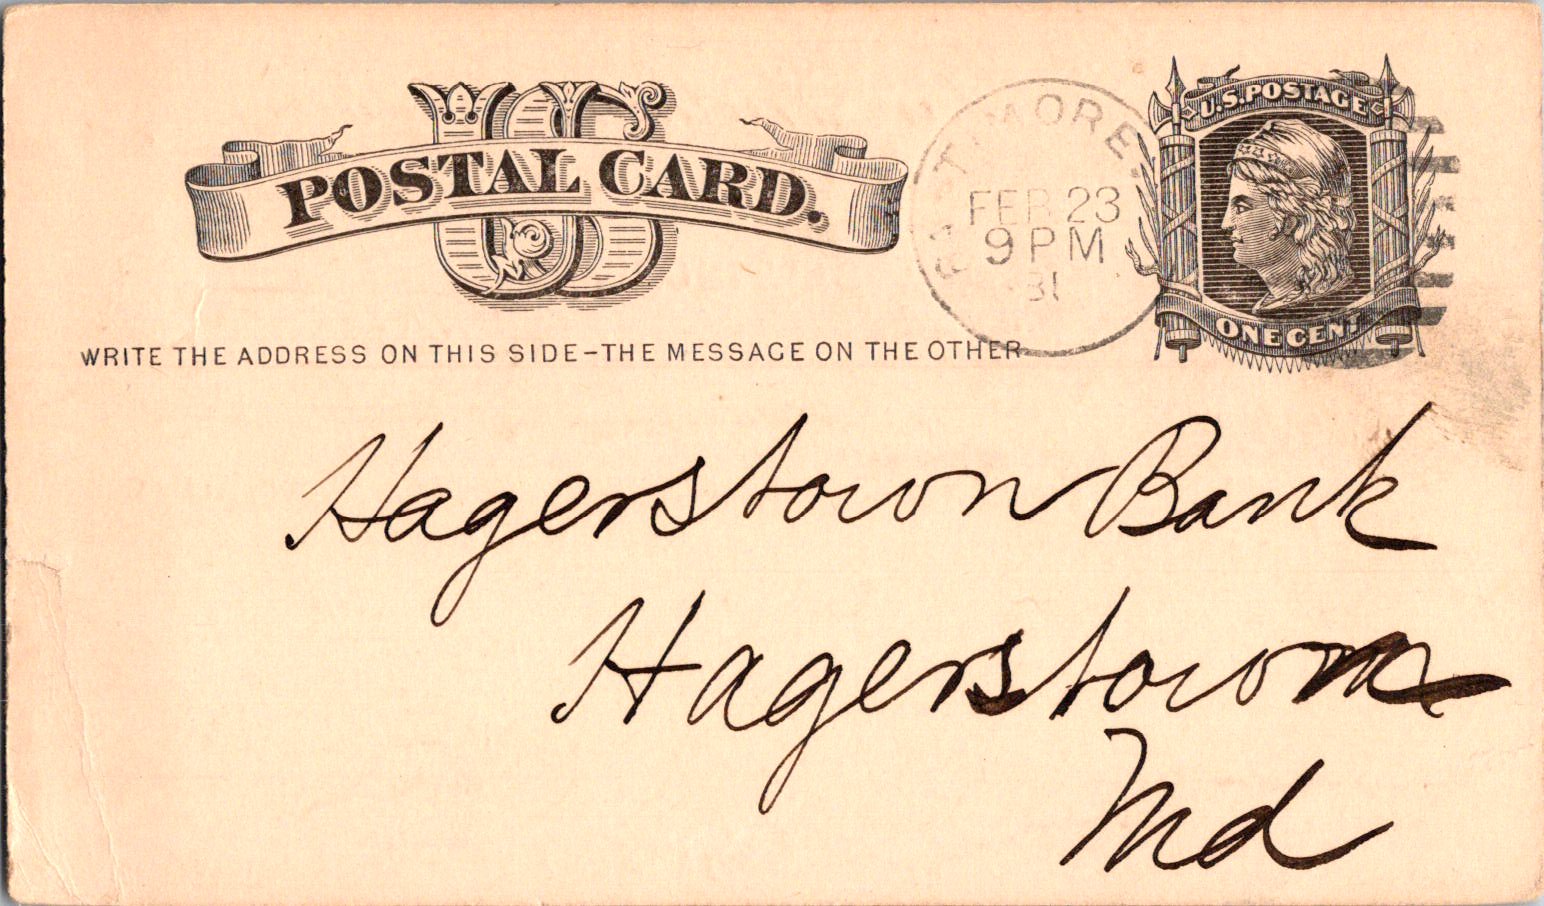 US
POSTAL CARD.
BALTIMORE.
FEB 23
9 PM
81
U.S. POSTAGE
ONE CENT
WRITE THE ADDRESS ON THIS SIDE-THE MESSAGE ON THE OTHER
Hagerstown Bank
Hagerstown
Md